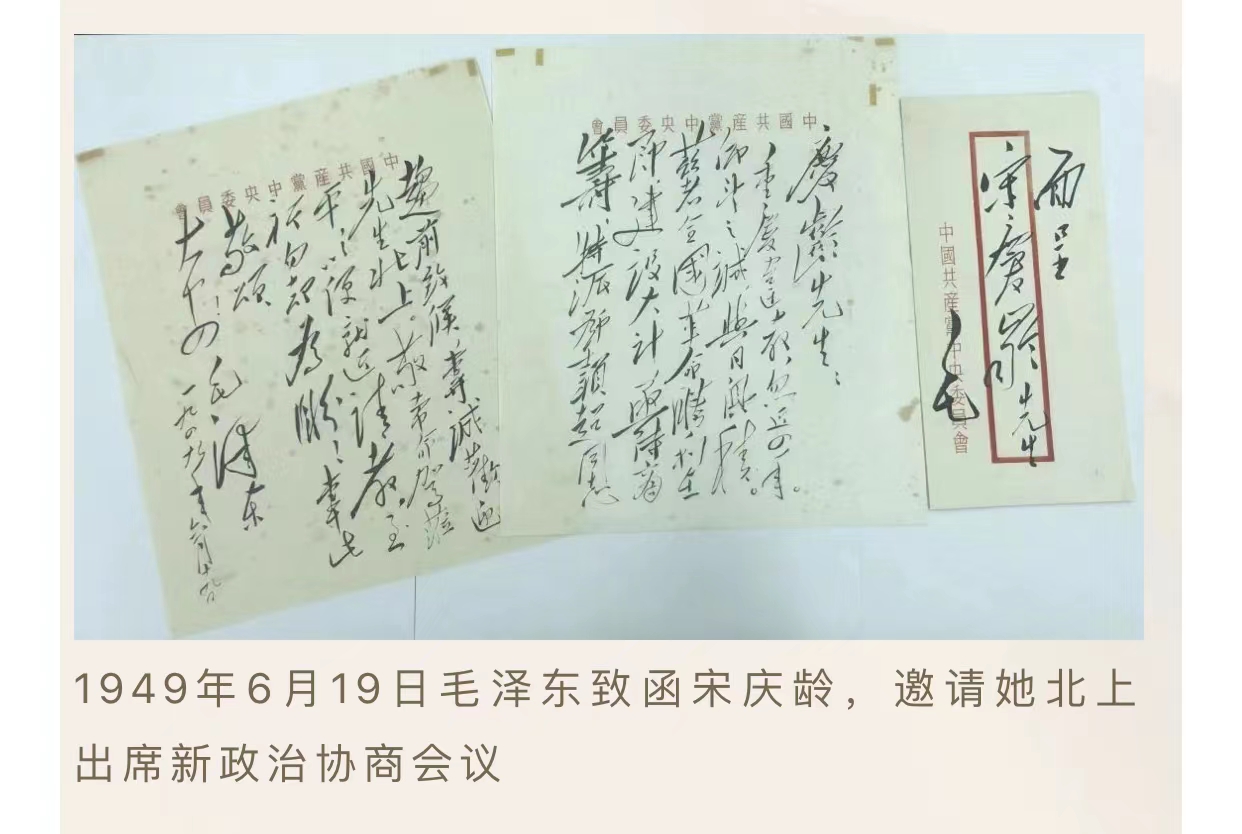 面呈
宋慶齡先生
毛
中國共産黨中央委員會
中國共産黨中央委員會
慶齡先生：
重慶違教，忽近四年。
仰望之誠，與日俱積。
兹者全國革命勝利在
即，建設大計，亟待商
籌，特派鄧穎超同志
中國共産黨中央委員會
趨前致候，專誠歡迎
先生北上。敬希命駕蒞
平，以便就近請教，至
祈勿却為盼！專此
敬頌
大安！
毛泽东
一九四九年六月十九日
1949年6月19日毛泽东致函宋庆龄，邀请她北上
出席新政治协商会议